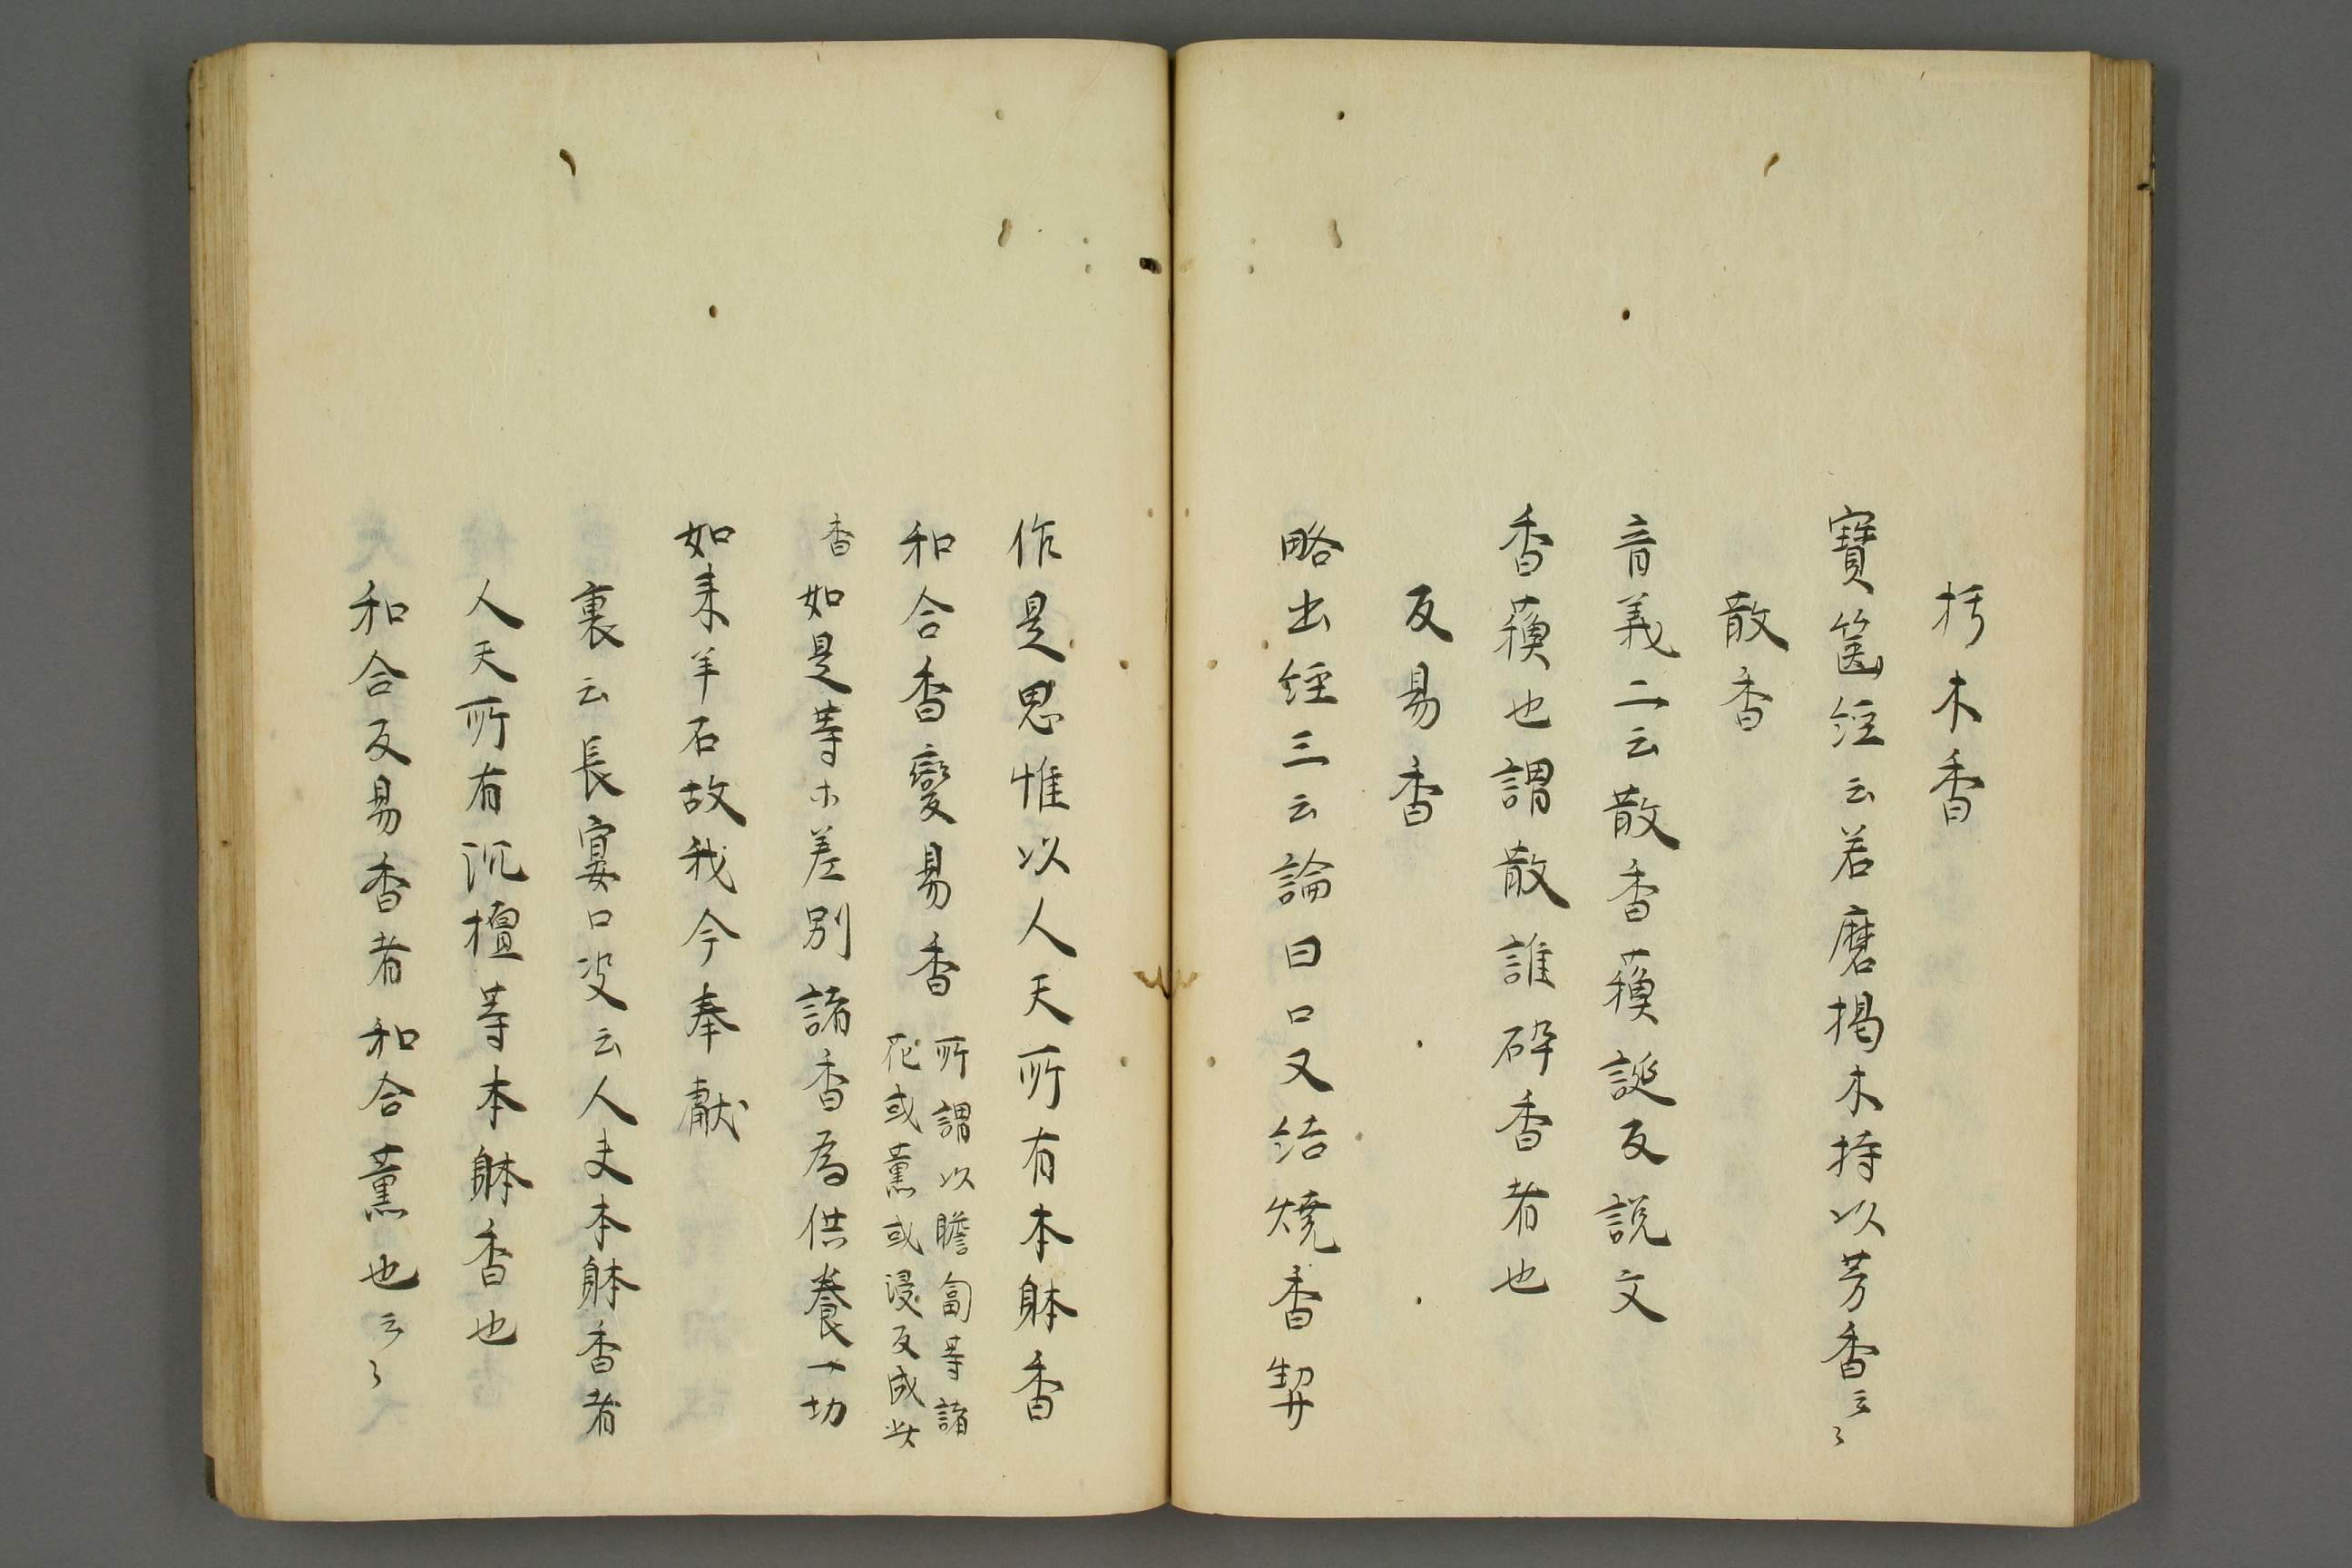 杇木香
寶篋經云若磨揭木持以芳香云々
散香
音義二云散香𮐃誕反説文
香𮐃也謂散誰碎香者也
反易香
略出經三云論曰口又結燒香契
作是思惟以人天所有本躰香
和合香變易香所謂以瞻匐等諸
花或薰或浸反成此
香如是等ホ差別諸香為供養一切
如来羊石故我今奉獻
裏云長宴口决云人天本躰香者
人天所有沉檀等本躰香也
和合反易香者和合薰也云々